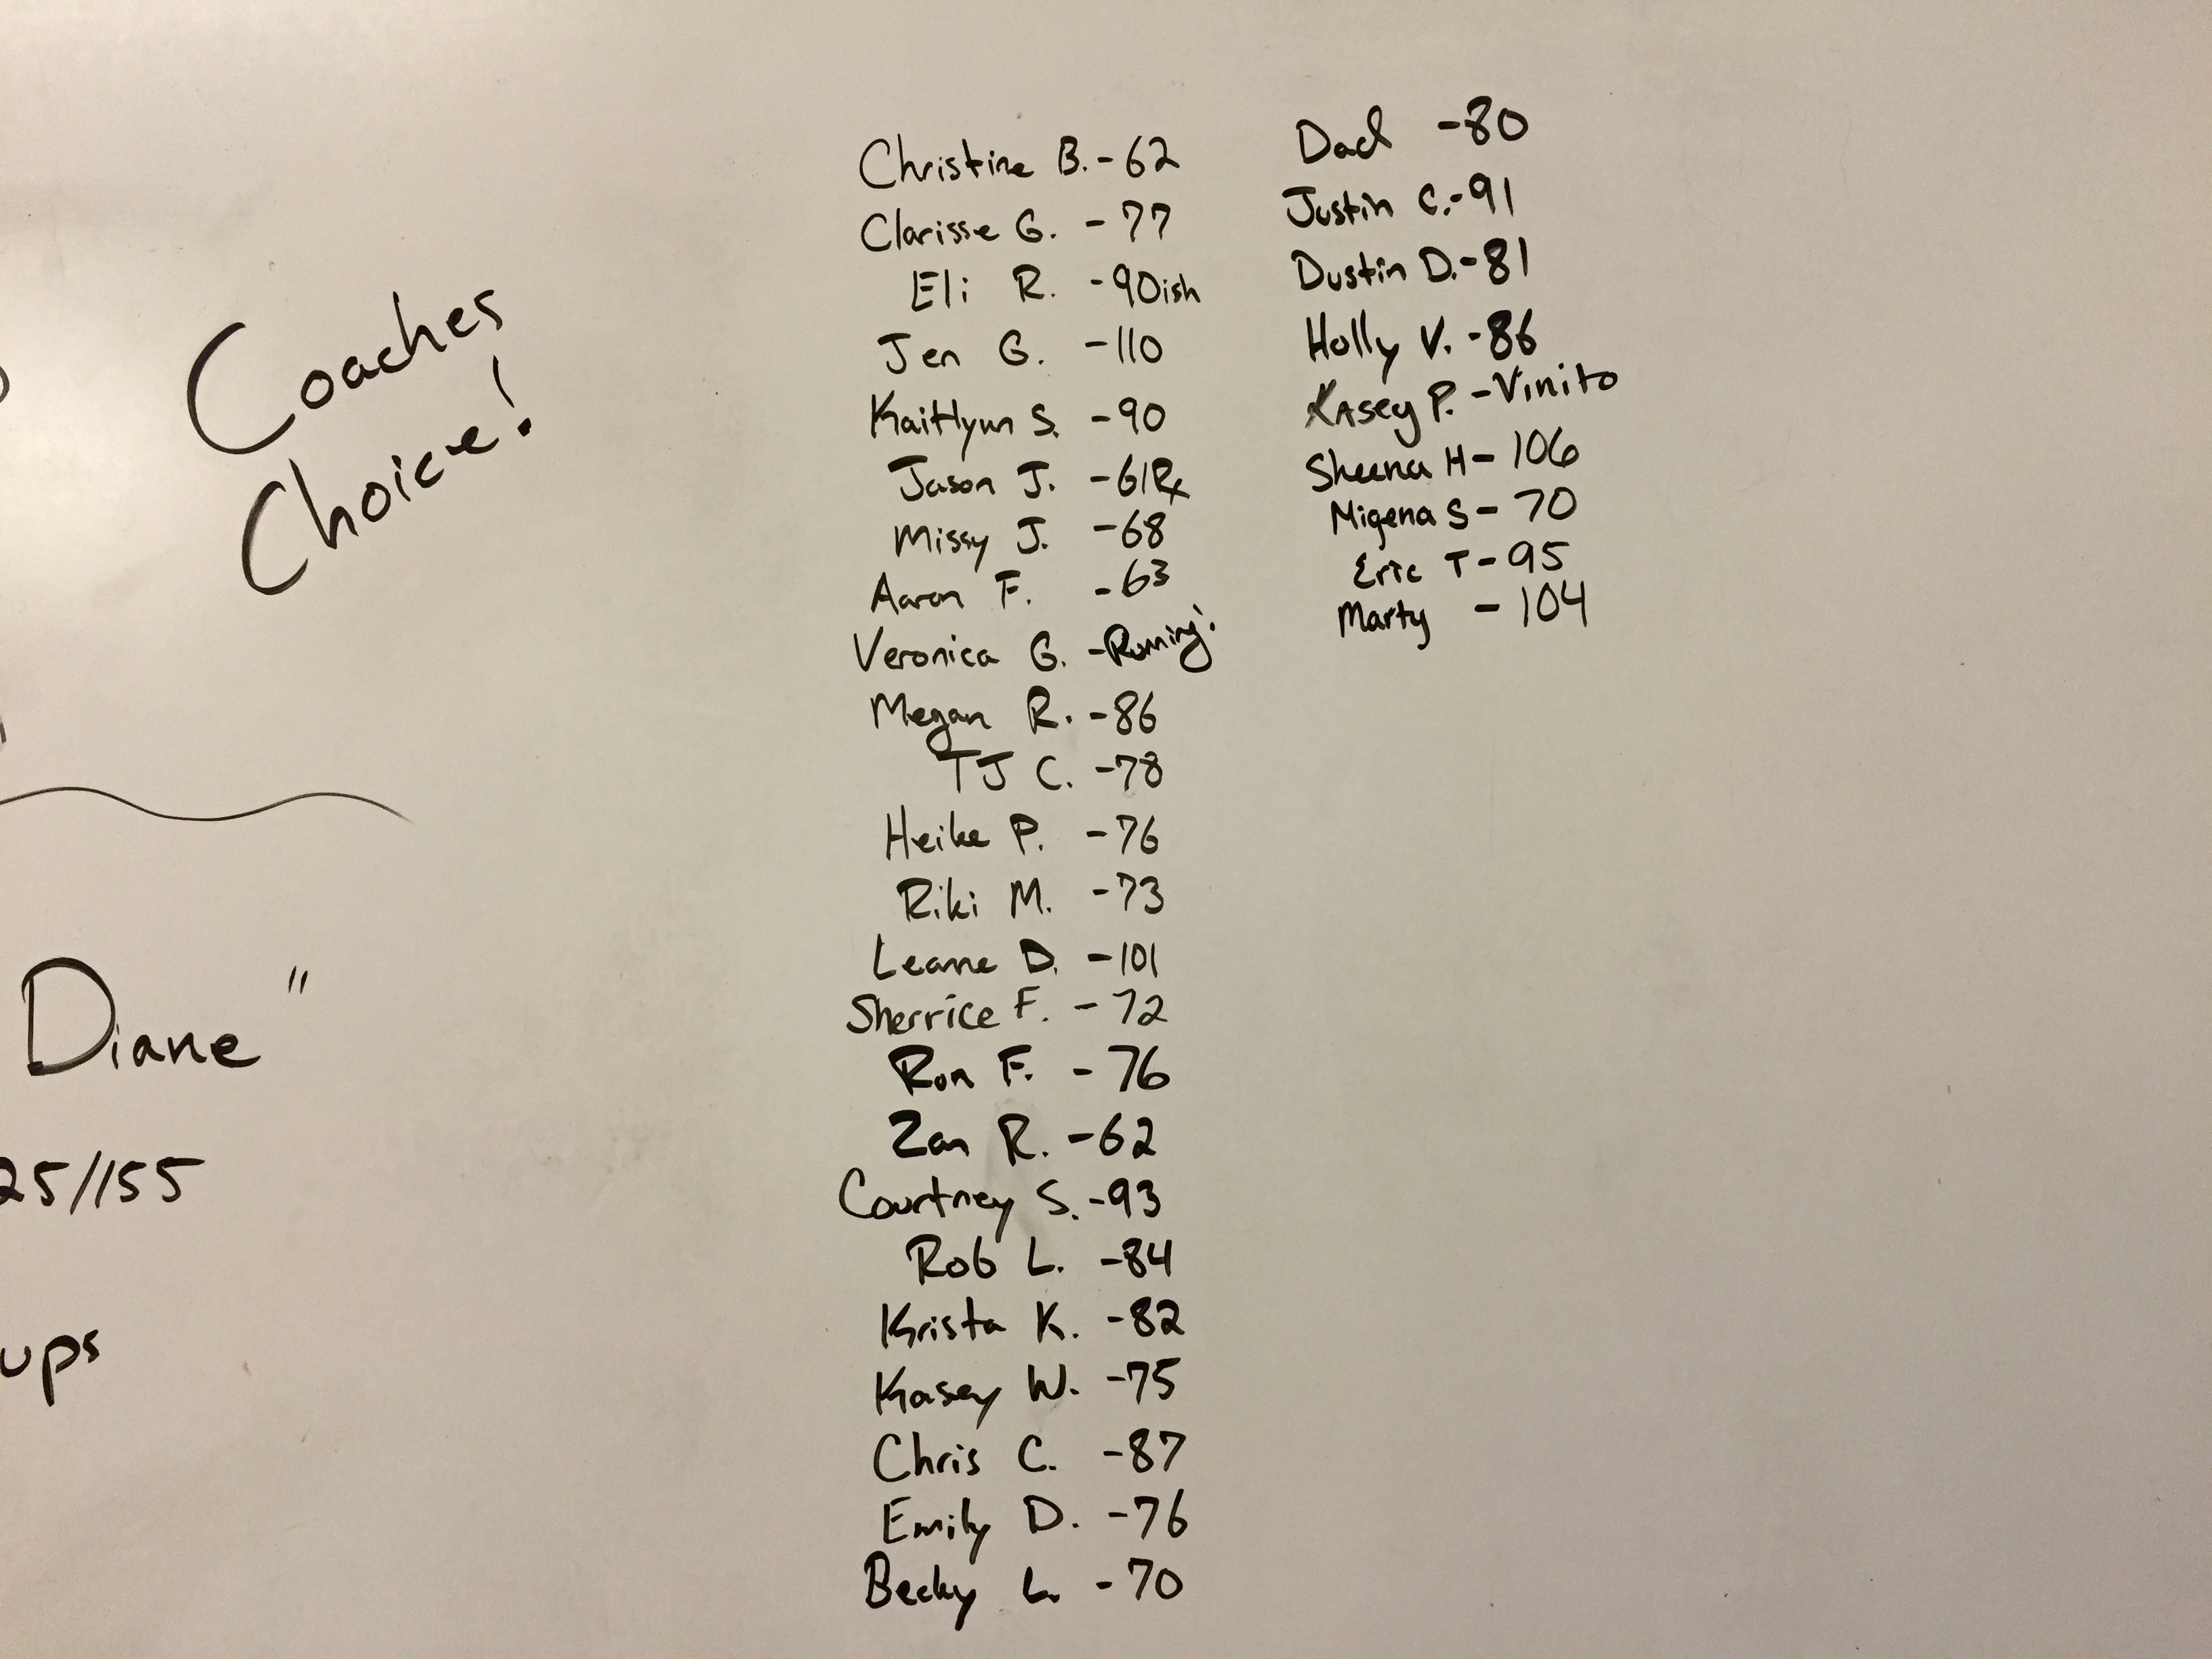 Coaches
Choice!
Diane"
25/155
ups
Christine B. - 62
Clarisse G. - 77
Eli R. - 90ish
Jen G. - 110
Kaitlynn S. - 90
Jason J. - 61Rx
Missy J. - 68
Aaron F. - 63
Veronica G. - Running!
Megan R. - 86
TJ C. - 78
Heike P. - 76
Riki M. - 73
Leanne D. - 101
Sherrice F. - 72
Ron F. - 76
Zan R. - 62
Courtney S. - 93
Rob L. - 84
Krista K. - 82
Kasey W. - 75
Chris C. - 87
Emily D. - 76
Becky L. - 70
Dad - 80
Justin C. - 91
Dustin D. - 81
Holly V. - 86
Kasey P. - Vinito
Sheena H - 106
Migena S - 70
Eric T - 95
Marty - 104